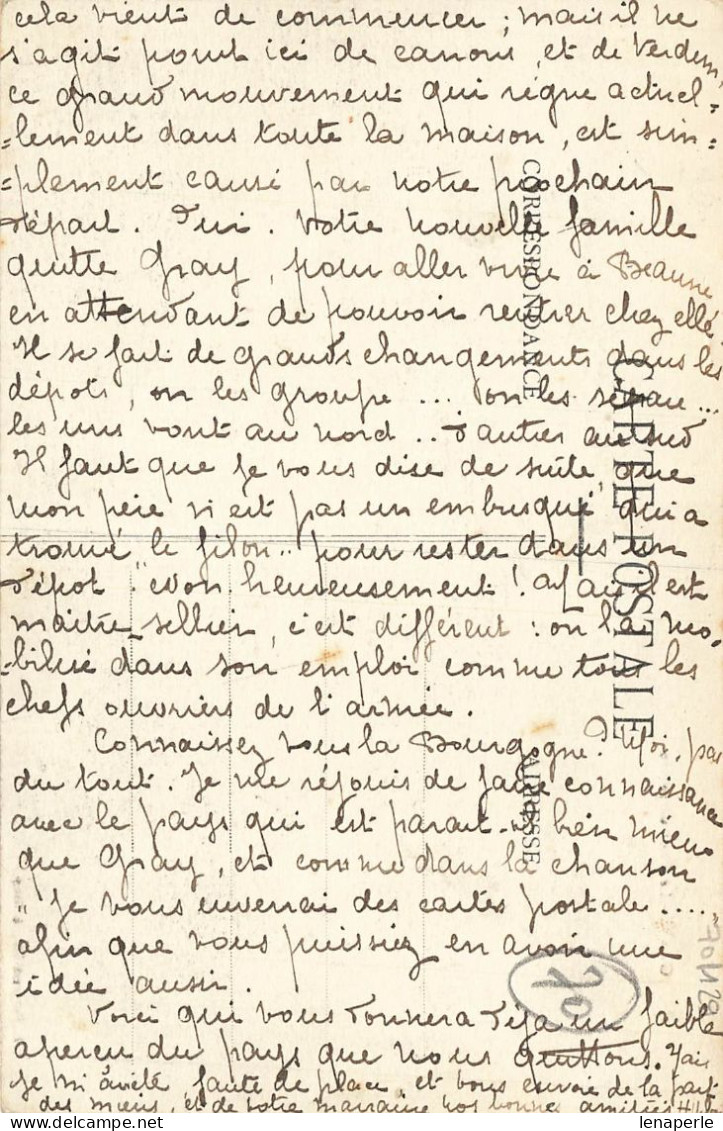 cela vient de commencer ; mais il ne
s'agit point ici de canons, et de Verdun,
ce grand mouvement qui règne actuel-
-lement dans toute la maison, est sim-
-plement causé par notre prochain
départ. Oui. Votre nouvelle famille
quitte Gray, pour aller vivre à Beaune
en attendant de pouvoir rentrer chez elle.
Il se fait de grands changements dans les
dépôts, on les groupe ... on les sépare...
les uns vont au nord .. d'autres au sud
Il faut que je vous dise de suite, que
mon père n'est pas un embusqué, qui a
trouvé le filon .. pour rester dans un
dépôt. Non heureusement ! il est
maître-sellier, c'est différent : on l'a mo-
-bilisé dans son emploi comme tous les
chefs ouvriers de l'armée.
Connaissez vous la Bourgogne ? Moi, pas
du tout. Je me réjouis de faire connaissance
avec le pays qui est parait-il bien mieux
que Gray, et comme dans la chanson
"Je vous enverrai des cartes postale ...."
afin que vous puissiez en avoir une
idée aussi.
Voici qui vous donnera déjà un faible
aperçu du pays que nous quittons. Mais
je m'arrête faute de place, et vous envoie de la part
des miens, et de votre marraine nos bonnes amitiés
CARTE POSTALE
CORRESPONDANCE
ADRESSE
70
lenaperle